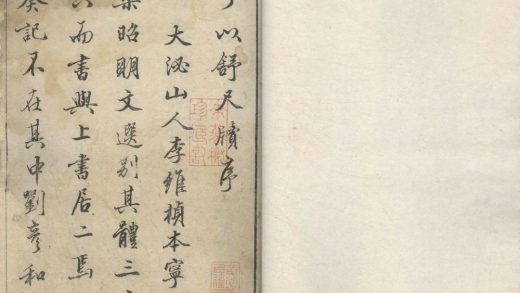 以舒尺牘序
大泌山人李維楨本寧
梁昭明文選別其體三
而書與上書居二焉
奏記不在其中劉彥和